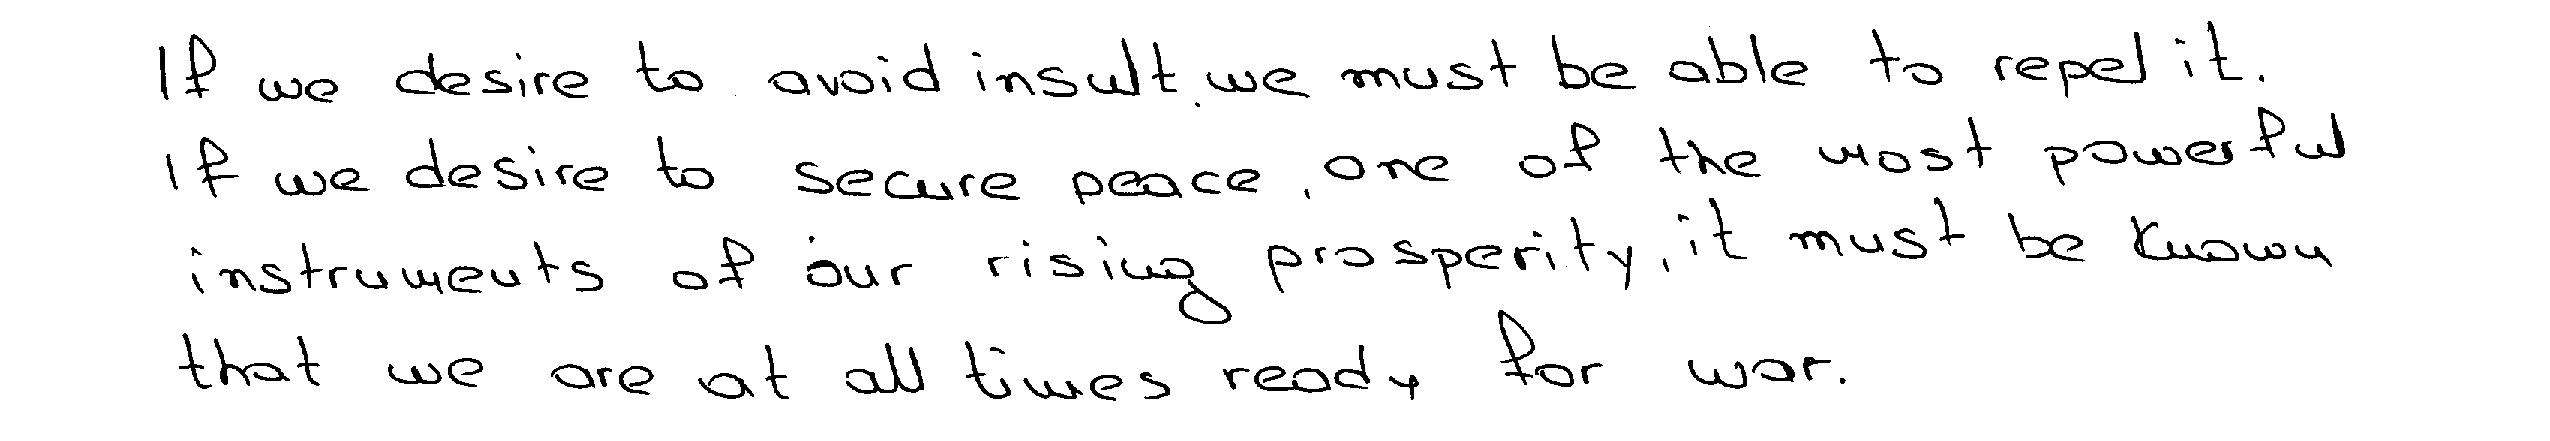 If we desire to avoid insult, we must be able to repel it.
If we desire to secure peace, one of the most powerful
instruments of our rising prosperity, it must be known
that we are at all times ready for war.